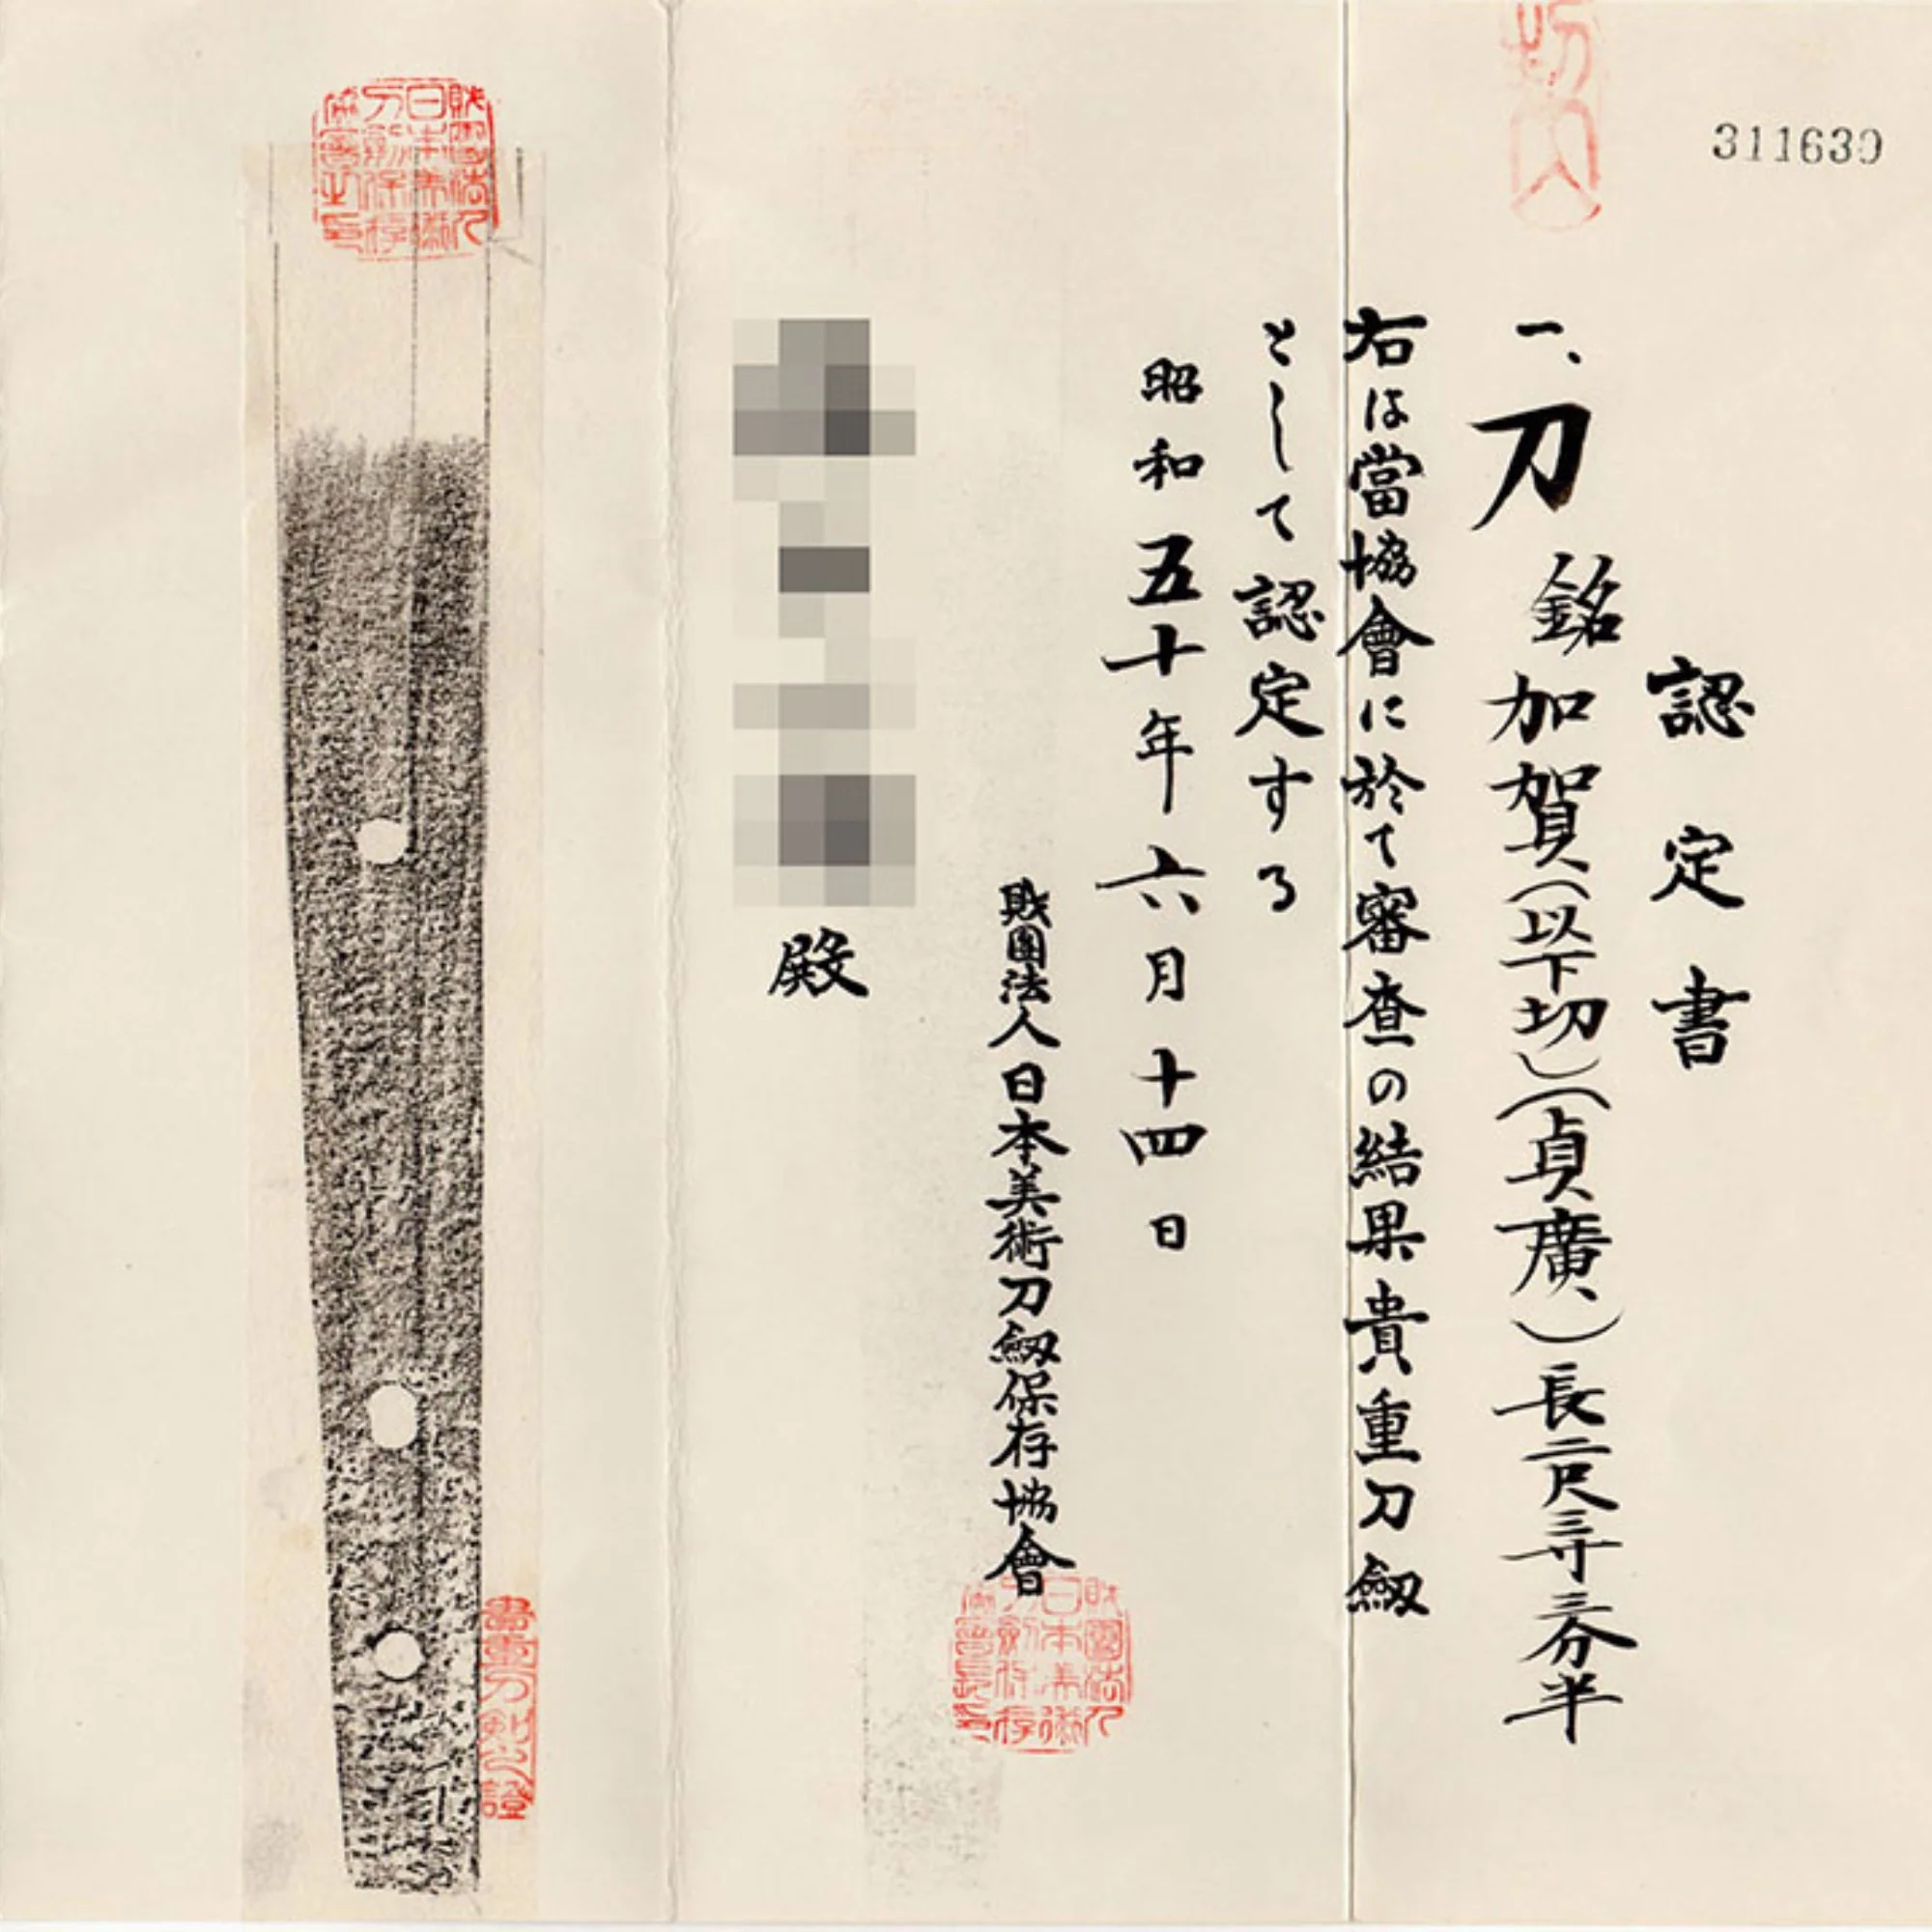 311630
認定書
一、刀 銘 加賀(以下切)(貞廣)長二尺三寸三分半
右は當協會に於て審査の結果貴重刀劔
として認定する
昭和五十年六月十四日
財團法人日本美術刀劔保存協會
殿
財團法人日本美術刀劍保存協會長印
財團法人日本美術刀劍保存協會之印
貴重刀剣之證